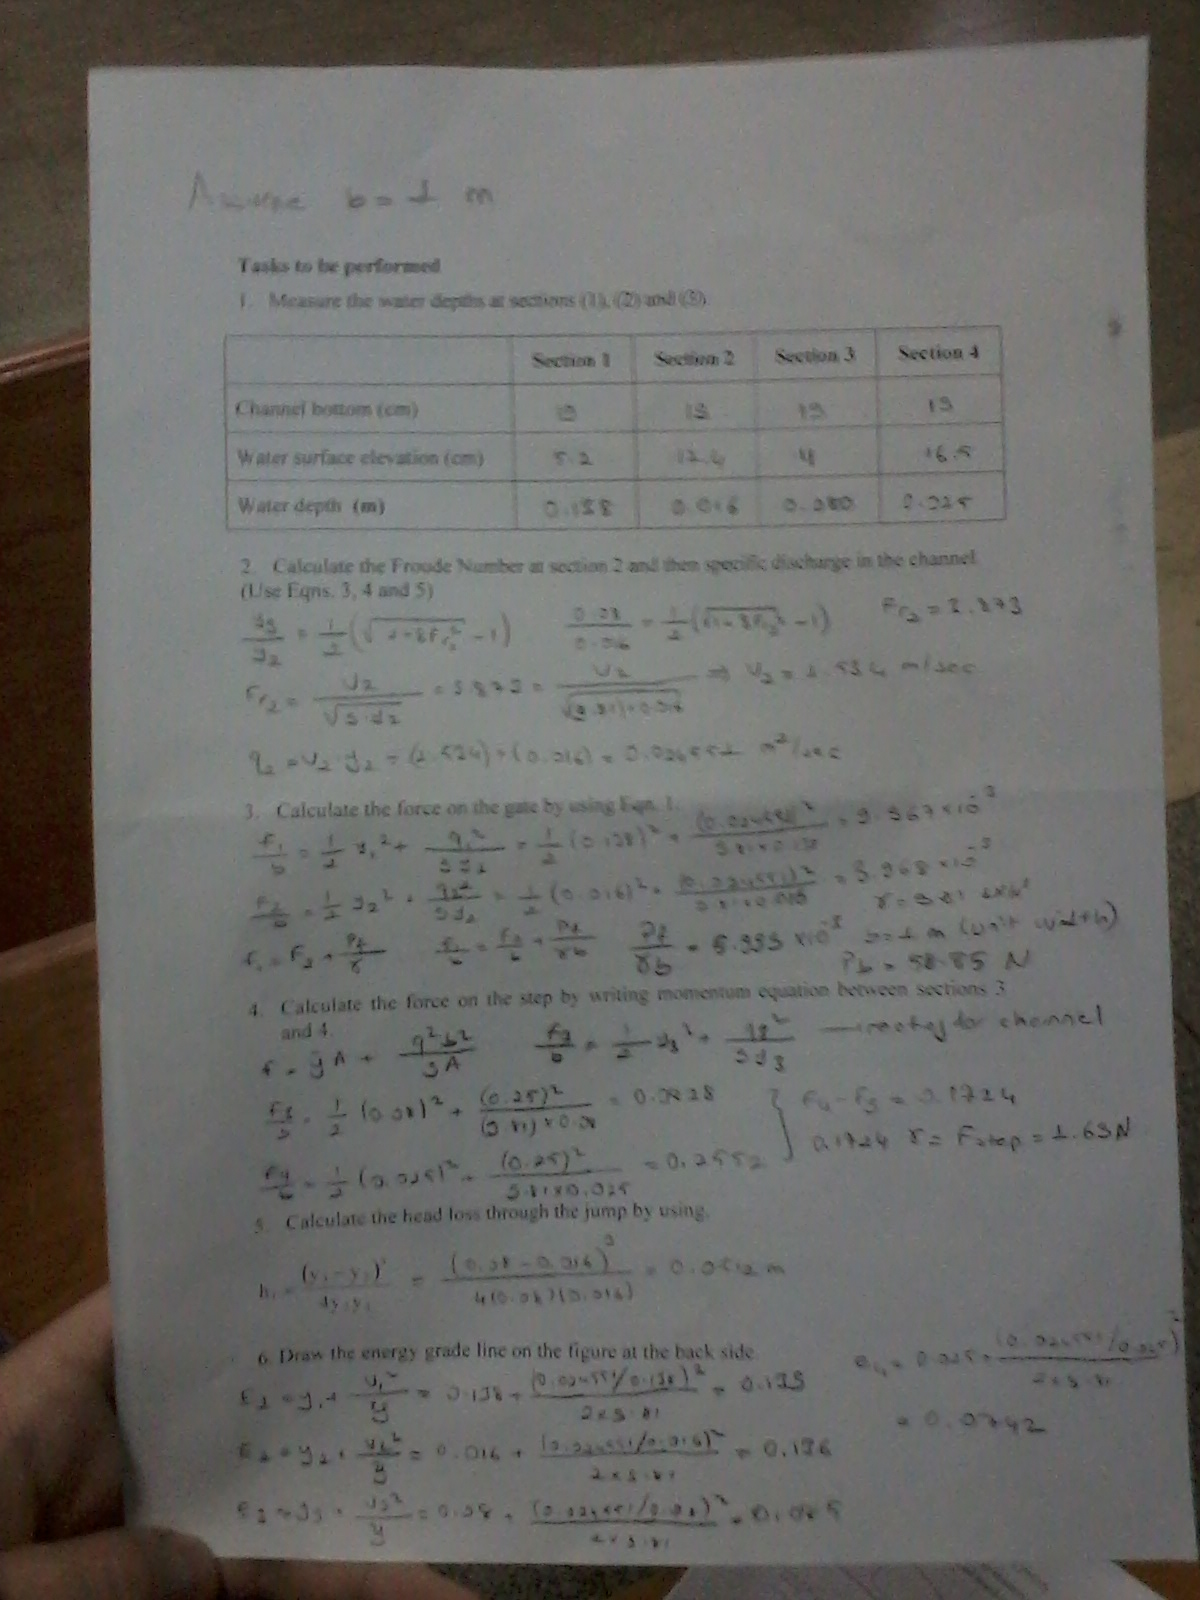 Assume b = 1 m
Tasks to be performed
1. Measure the water depths at sections (1), (2) and (3).
Section 1 Section 2 Section 3 Section 4
Channel bottom (cm) 19 19 19 19
Water surface elevation (cm) 5.2 17.4 11 16.5
Water depth (m) 0.138 0.016 0.080 0.025
2. Calculate the Froude Number at section 2 and then specific discharge in the channel.
(Use Eqns. 3, 4 and 5)
y3/y2 = 1/2 (√1+8Fr2² - 1) 0.08/0.016 = 1/2 (√1+8Fr2² - 1) Fr2 = 3.873
Fr2 = V2/√g.y2 = 3.873 = V2/√(9.81)*0.016 ⇒ V2 = 1.534 m/sec
q2 = V2 y2 = (1.534)*(0.016) = 0.024551 m²/sec
3. Calculate the force on the gate by using Eqn. 1.
F1/b = 1/2 y1² + q1²/gy1 = 1/2 (0.138)² + (0.024551)²/9.81x0.138 = 9.967x10⁻³
F2/b = 1/2 y2² + q2²/gy2 = 1/2 (0.016)² + (0.024551)²/9.81x0.016 = 3.968x10⁻³
F1 = F2 + Pf/γ F1/b = F2/b + Pf/γb Pf/γb = 5.999 x10⁻³ b=1 m (unit width)
= 58.85 N
4. Calculate the force on the step by writing momentum equation between sections 3
and 4.
F = ȳA + q²b²/gA F3/b = 1/2 y3² + q3²/gy3 channel
F3/b = 1/2 (0.08)² + (0.25)²/(9.81)x0.08 = 0.0828 F4-F3 = 0.1724
F4/b = 1/2 (0.025)² + (0.25)²/9.81x0.025 = 0.2552 0.1724 γ = Fstep = 1.69N
5. Calculate the head loss through the jump by using.
= (0.08 - 0.016)³/4(0.08)(0.016) = 0.0512 m
6. Draw the energy grade line on the figure at the back side.
E1 = y1 + V1²/g = 0.138 + (0.024551/0.138)²/2x9.81 = 0.139
E2 = y2 + V2²/g = 0.016 + (0.024551/0.016)²/2x9.81 = 0.136
E3 = y3 + V3²/g = 0.08 + (0.024551/0.08)²/2x9.81 = 0.085
E4 = 0.025 + (0.024551/0.025)²/2x9.81
= 0.0742